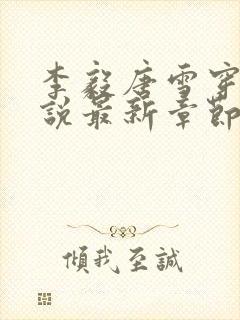 李毅唐雪穿
說最新章節
傾我至誠